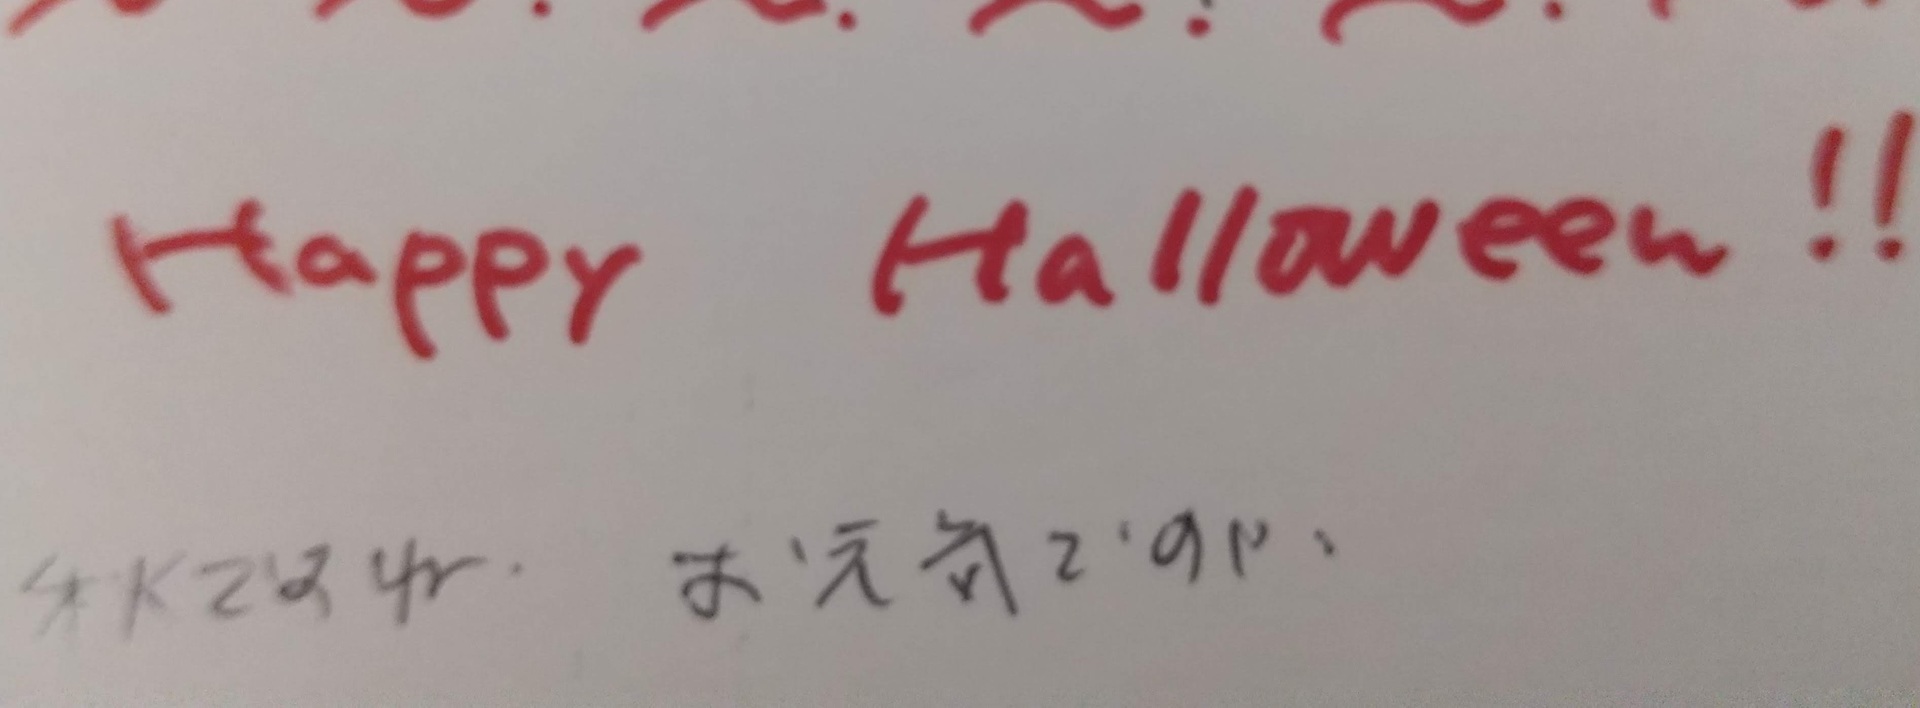 Happy Halloween!!
秋ですね. お元気ですか、